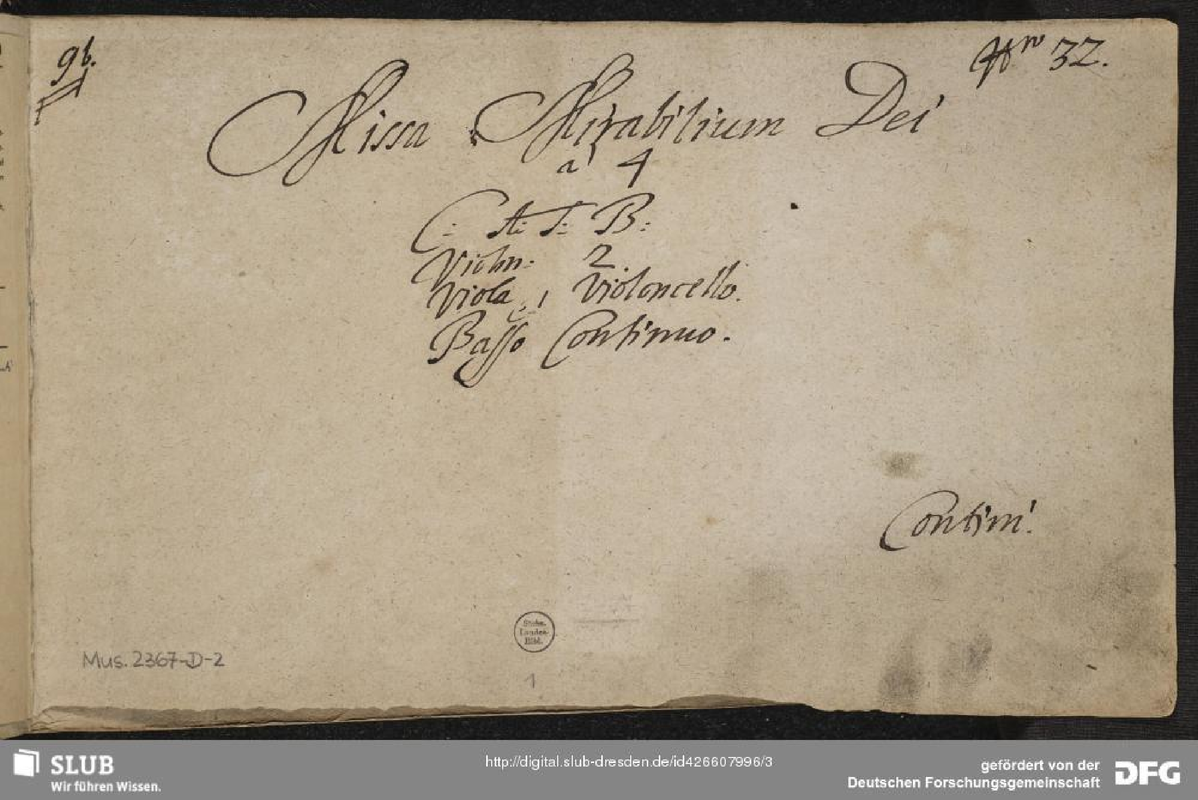 9b.
Nro 32.
Missa Mirabilium Dei
a 4
C: A: T: B:
Violin: 2
Viola 1 Violoncello.
Basso Continuo.
Contini.
Mus. 2367-D-2
Sächs.
Landes-
Bibl.
1
SLUB
Wir führen Wissen.
http://digital.slub-dresden.de/id426607996/3
gefördert von der
Deutschen Forschungsgemeinschaft
DFG